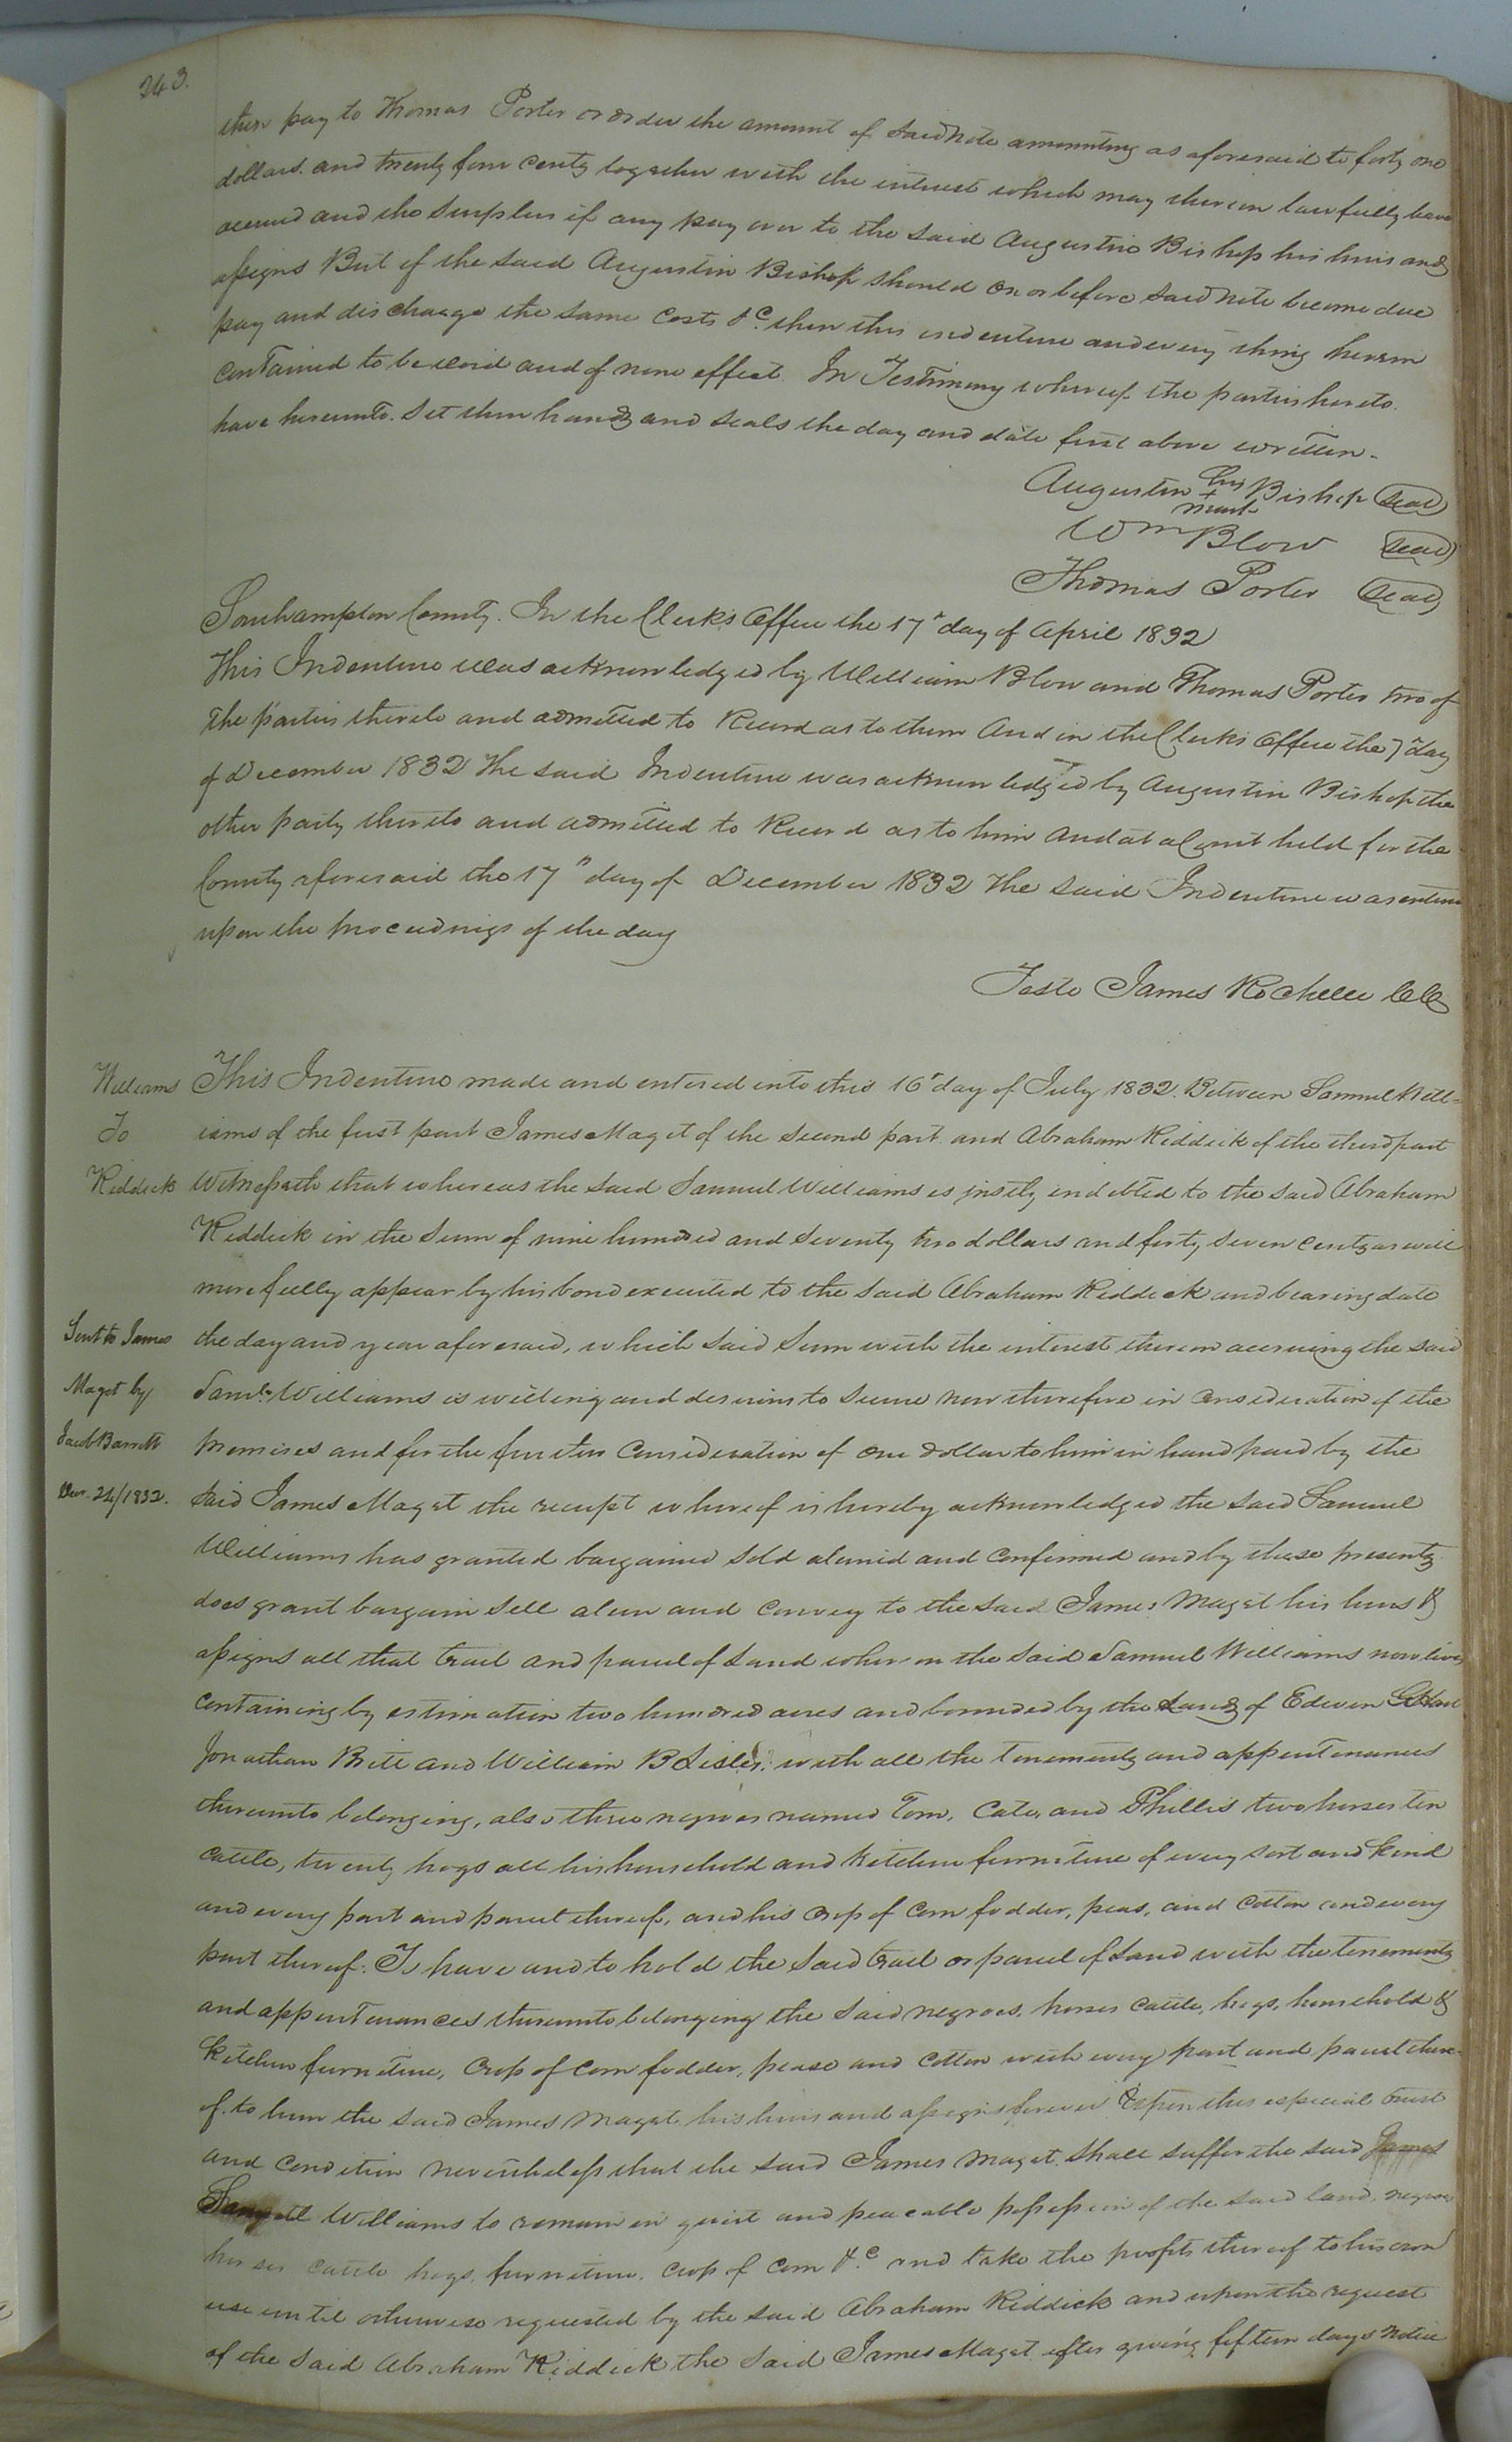 243.
then pay to Thomas Porter or order the amount of said note amounting as aforesaid to forty one
dollars and twenty four cents together with the interest which may thereon lawfully have
accrued and the surplus if any pay over to the said Augustine Bishop his heirs and
assigns But if the said Augustin Bishop should on or before said note become due
pay and discharge the same Costs &c. then this indenture and every thing herein
contained to be void and of none effect. In Testimony whereof the parties hereto
have hereunto set their hands and seals the day and date first above written.
Augustin his + mark Bishop (seal)
Wm Blow (seal)
Thomas Porter (seal)
Southampton County. In the Clerk's Office the 17" day of April 1832
This Indenture was acknowledged by William Blow and Thomas Porter two of
the parties thereto and admitted to Record as to them And in the Clerks Office the 7" day
of December 1832 The said Indenture was acknowledged by Augustin Bishop the
other party thereto and admitted to Record as to him And at a Court held for the
County aforesaid the 17" day of December 1832 The said Indenture was entered
upon the proceedings of the day
Teste James Rochelle CC
Williams
To
Riddick
This Indenture made and entered into this 16" day of July 1832. Between Samuel Will-
iams of the first part James Maget of the second part and Abraham Riddick of the third part
Witnesseth that whereas the said Samuel Williams is justly indebted to the said Abraham
Riddick in the sum of nine hundred and seventy two dollars and forty seven cents as will
more fully appear by his bond executed to the said Abraham Riddick and bearing date
Sent to James
Maget by
Jacob Barrett
Decr. 24/1832.
the day and year aforesaid, which said sum with the interest thereon accruing the said
Saml. Williams is willing and desirous to secure now therefore in consideration of the
premises and for the further Consideration of one dollar to him in hand paid by the
said James Maget the receipt whereof is hereby acknowledged the said Samuel
Williams has granted bargained sold aliened and confirmed and by these presents
does grant bargain sell alien and convey to the said James Maget his heirs &
assigns all that tract and parcel of Land where on the said Samuel Williams now lives
containing by estimation two hundred acres and bounded by the Lands of Edwin G Hart
Jonathan Britt and William B Lisles, with all the tenements and appurtenances
thereunto belonging, also three negroes named Tom, Cato, and Phillis two horses ten
cattle, twenty hogs all his household and kitchen furniture of every sort and kind
and every part and parcel thereof, and his crop of corn fodder, peas, and cotton and every
part thereof: To have and to hold the said tract or parcel of Land with the tenements
and appurtenances thereunto belonging the said negroes, horses cattle, hogs, household &
kitchen furniture, Crop of corn fodder, pease and cotton with every part and parcel there-
of. to him the said James Maget his heirs and assigns forever Upon this especial trust
and condition nevertheless that the said James Maget shall suffer the said James
Samuel Williams to remain in quiet and peaceable possession of the said land, negroes
horses cattle hogs, furniture. crop of corn &c. and take the profits thereof to his own
use until otherwise requested by the said Abraham Riddick and upon the request
of the said Abraham Riddick the said James Maget after giving fifteen days notice